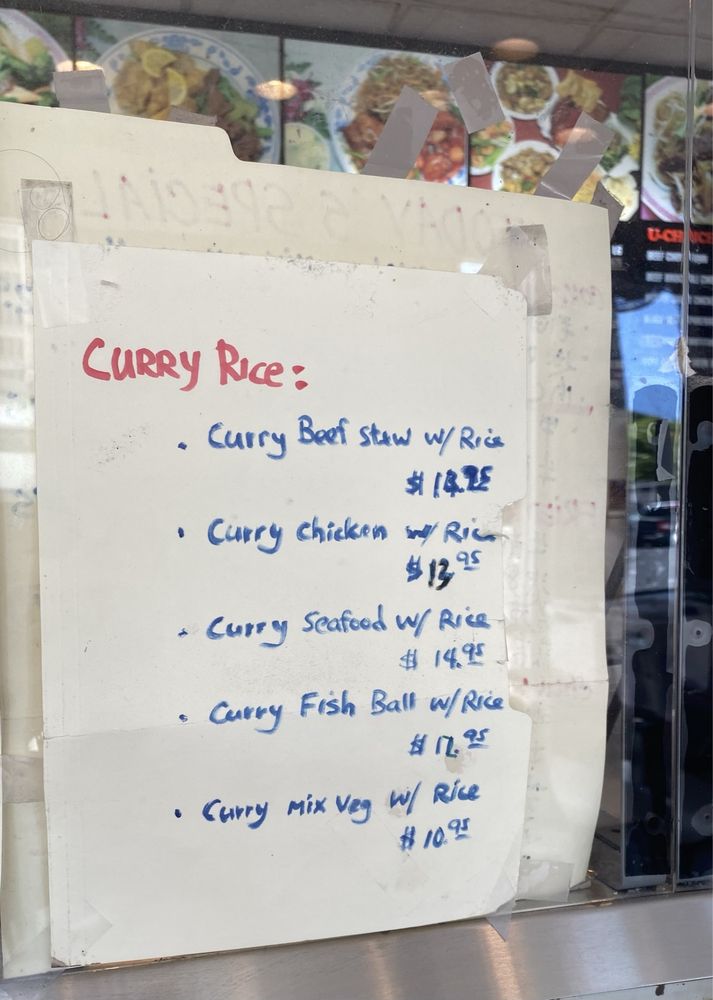 TODAY'S SPECIAL
U-CHOICE
CURRY RICE:
• Curry Beef Stew w/ Rice
• Curry Chicken w/ Rice
$13.95
• Curry Seafood w/ Rice
$14.95
• Curry Fish Ball w/ Rice
$12.95
• Curry mix Veg w/ Rice
$10.95